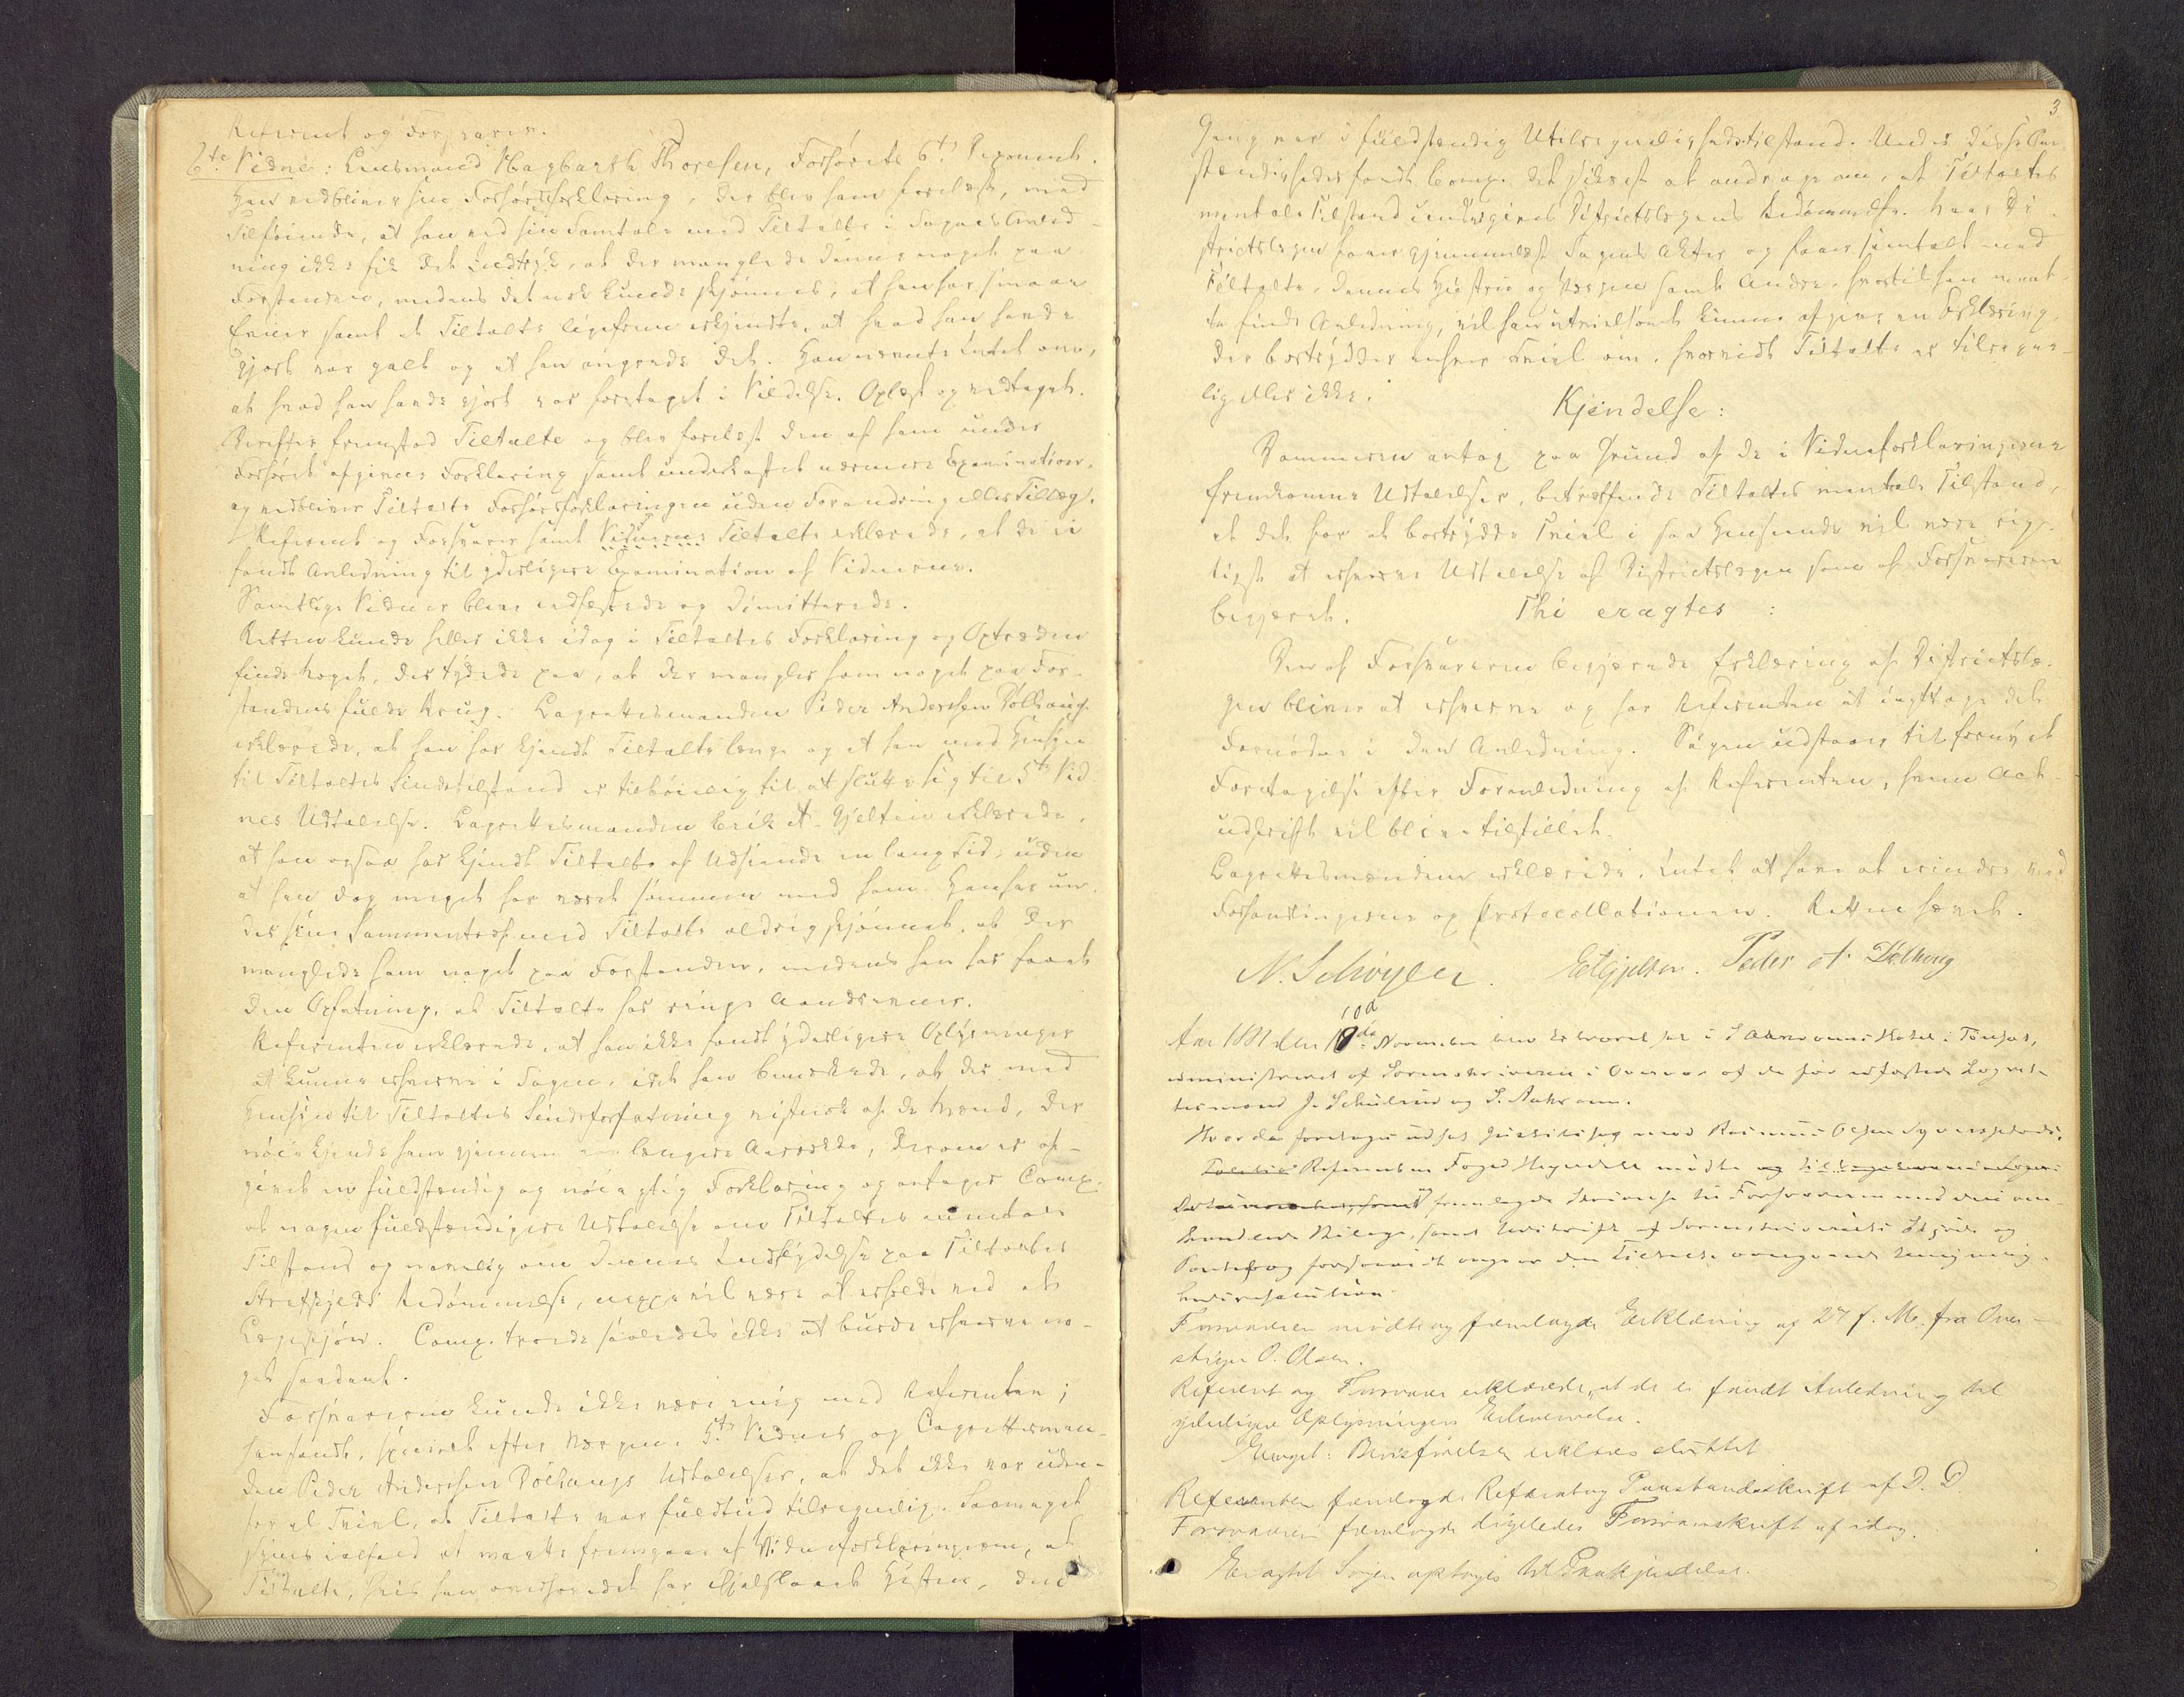 Referent og Forsvarer.
6te Vidne: Lensmand Hagbarth Thoresen, Forhørets 6te Deponent.
Han vedbliver sin Forhørsforklaring, der blev ham forelæst, med
Tilføiende, at han ved sin Samtale med Tiltalte i Sagens Anled-
ning ikke fik det Indtryk, at der manglede denne noget paa
Forstanden, medens det nok kunde skjønnes, at han har smaa
Evner samt at Tiltalte ligefrem erkjendte, at hvad han havde
gjort var galt og at han angrede det. Han nævnte Intet om,
at hvad han havde gjort var foretaget i Vildelse. Oplæst og vedtaget.
Derefter fremstod Tiltalte og blev forelæst den af ham under
Forhøret afgivne Forklaring samt underkastet nærmere Examination,
og vedbliver Tiltalte Forhørsforklaringen uden Forandring eller Tillæg.
Referent og Forsvarer samt Vidnerne Tiltalte erklærede, at de ei
fandt Anledning til yderligere Examination af Vidnerne.
Samtlige Vidner bleve edfæstede og dimitterede.
Retten kunde heller ikke idag i Tiltaltes Forklaring og Optræden
finde Noget, der tydede paa, at der mangler ham noget paa For-
standens fulde Brug. Lagrettesmanden Peder Anderssen Dølhaug
erklærede, at han har kjendt Tiltalte længe og at han med Hensyn
til Tiltaltes Sindstilstand er tilbøielig til at slutte sig til 5te Vid-
nes Udtalelse. Lagrettesmanden Erik E. Gjelten erklærede,
at han ogsaa har kjendt Tiltalte af Udseende en lang Tid, uden
at han dog meget har været sammen med ham. Han har un-
der sine Sammentræf med Tiltalte aldrig skjønnet, at der
manglede ham noget paa Forstanden, medens han har faaet
den Opfatning, at Tiltalte har ringe Aandsevner.
Referenten erklærede, at han ikke fandt yderligere Oplysninger
at kunne erhverve i Sagen, idet han bemærkede, at der med
Hensyn til Tiltaltes Sindsforfatning vistnok af de Mænd, der
nøie kjende ham gjennem en længere Aarrække, derom er af-
givet en fuldstændig og nøiagtig Forklaring og antager Comp.
at nogen fuldstændigere Udtalelse om Tiltaltes mentale
Tilstand og navnlig om dennes Indflydelse paa Tiltaltes
Strafskylds Bedømmelse, neppe vil være at erholde ved et
Lægeskjøn. Comp. troede saaledes ikke at burde erhverve no-
get saadant.
Forsvareren kunde ikke være enig med Referenten;
han fandt, specielt efter Værgen, 5te Vidnes og Lagrettesman-
den Peder Anderssen Dølhaugs Udtalelser, at det ikke var uden-
for al Tvivl, at Tiltalte var fuldtud tilregnelig. Saameget
synes ialfald at maatte fremgaa af Vidneforklaringerne, at
Tiltalte, hvis han overhovedet har ihjelslaaet Hesten, den
3
Gang var i fuldstændig Utilregnelighedstilstand. Under disse Om-
stændigheder fandt Comp. det sikrest at andrage om, at Tiltaltes
mentale Tilstand undergives Distriktslægens Bedømmelse. Naar Di-
striktslægen faaer gjennemlæst Sagens Akter og faaer samtalt med
Tiltalte, dennes Hustru og Værgen samt Andre, hvortil han maat-
te finde Anledning, vil han utvivlsomt kunne afgive en Erklæring,
der bortrydder enhver Tvivl om, hvorvidt Tiltalte er tilregne-
lig eller ikke.
Kjendelse:
Dommeren antog paa Grund af de i Vidneforklaringerne
fremkomne Udtalelser, betræffende Tiltaltes mentale Tilstand,
at det for at bortrydde Tvivl i saa Henseende vil være rig-
tigst at erhverve Udtalelse af Distriktslægen som af Forsvareren
begjæret. Thi eragtes:
Den af Forsvareren begjærede Erklæring af Distriktslæ-
gen bliver at erhverve og har Referenten at iagttage det
Fornødne i den Anledning. Sagen udstaar til fornyet
Foretagelse efter Foranledning af Referenten, hvem Act-
udskrift vil blive tilstillet.
Lagrettesmændene erklærede, Intet at have at erindre ved
Forhandlingerne og Protocollationen. Retten hævet.
N. Schøyen. E E Gjelten. Peder A. Dølhaug
10d
Aar 1881 den 10de November blev Extraret sat i Aasrums Hotel i Tønset,
administreret af Sorenskriveren i Overvær af de før edfæstede Lagret-
tesmænd J. Schulrud og S. Aasrum.
Hvorda foretoges udsat Justitssag mod Rasmus Olsen
Referenten Foged mødte og
fremlagde Skrivelse til Forsvareren med
Bilage, samt Udskrift af Sorenskriveriets og
Forsvareren mødte og fremlagde Erklæring af 27 f. M. fra Over-
stiger O. Olsen.
Referent og Forsvarer erklærede, at de ei fandt Anledning til
yderligere Oplysningers Erhvervelse.
Eragtet: Bevisførelsen erklæres sluttet
Referenten fremlagde Referat og Paastandsskrift af D. D.
Forsvareren fremlagde ligeledes Forsvarsskrift af idag.
Eragtet Sagen optages til Paakjendelse.